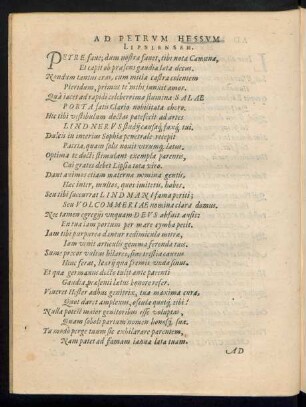 AD PETRVM HESSVM
LIPSIENSEM.
PETRE faue, dum nostra fauet, tibi nota Camœna,
Et capit ob præsens gaudia lata decus.
Nondum tantus eras, cum multa castra colentem
Pieridum, primus te mihi junxit amor.
Quà jacet ad rapidi celeberrima flumina SALAE
PORTA satis Clario nobilitata choro.
Hic tibi vestibulum doctas patefecit ad artes
LINDNERVS studij causa, fauq; tui.
Ducit in interius Sophia penetrale recepit
Patria, quam solis nouit vtrumq; latus.
Optima te docti stimulant exempla parentis,
Cui grates debet Lipsia tota viro.
Dant animos etiam materna nomina gentis,
Hac inter, multos, quos imiteris, habes.
Seu tibi succurrat LINDMAN (fama petiti)
Seu VOLCOMMERIAE nomina clara domus.
Nec tamen egregijs vnquam DEVS abfuit ausis:
En tua jam partum per mare cymba petit.
Iam tibi purpurea dantur redimicula mitra,
Iam venit articulis gemma ferenda tuis.
Sume precor vultus hilares, sine tristia curæ
Huic ferat, lacrijq; fremis vnda sinus.
Et qua germanis docte tuis ante parenti
Gaudia præsenti latus honore refer.
Viueret Hester adhuc genitrix, tua maxima cura,
Quot daret amplexus,
Nulla potest maior genitoribus esse voluptas,
Quam soboli partam nomen
Tu modo perge tuum sic exhilarare parentem,
Nam patet ad famam janua lata tuam.
AD